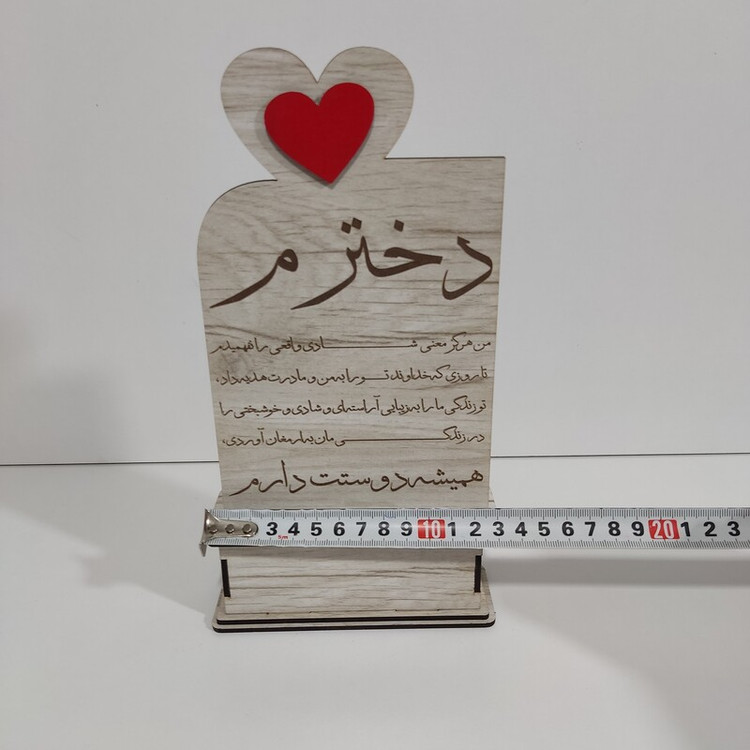 دخترم
من هرگز معنی شادی واقعی را نفهمیدم
تا روزی که خداوند تو را به من و مادرت هدیه داد،
تو زندگی ما را به زیبایی آراسته‌ای و شادی و خوشبختی را
در زندگی مان به ارمغان آوردی،
همیشه دوستت دارم
3 4 5 6 7 8 9 10 1 2 3 4 5 6 7 8 9 20 1 2 3